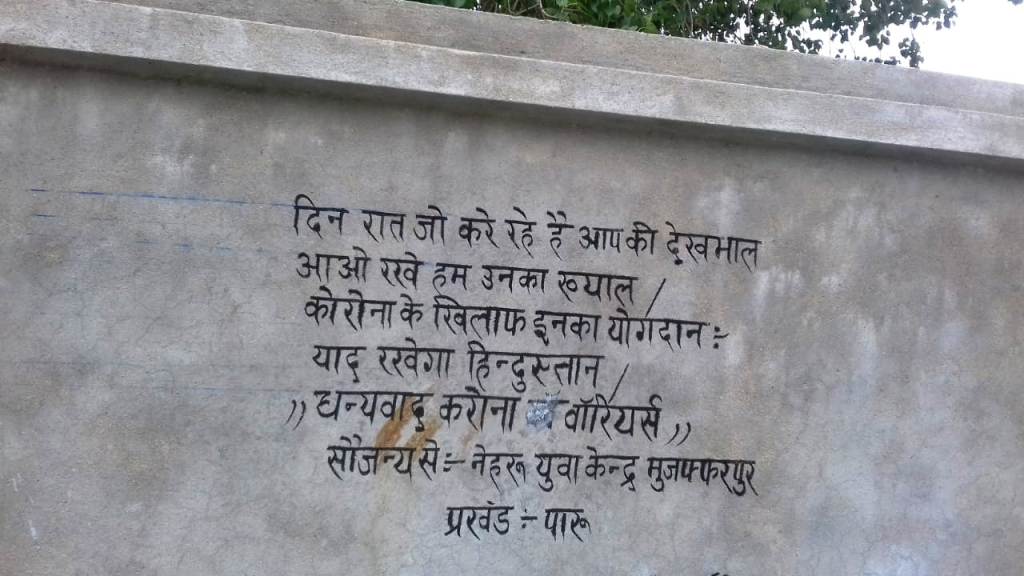 दिन रात जो करे रहे है आप की देखभाल
आओ रखे हम उनका ख्याल /
कोरोना के खिलाफ इनका योगदान :-
याद रखेगा हिन्दुस्तान /
,, धन्यवाद करोना वॉरियर्स ,,
सौजन्य से :- नेहरू युवा केन्द्र मुजफ्फरपुर
प्रखंड :- पारू